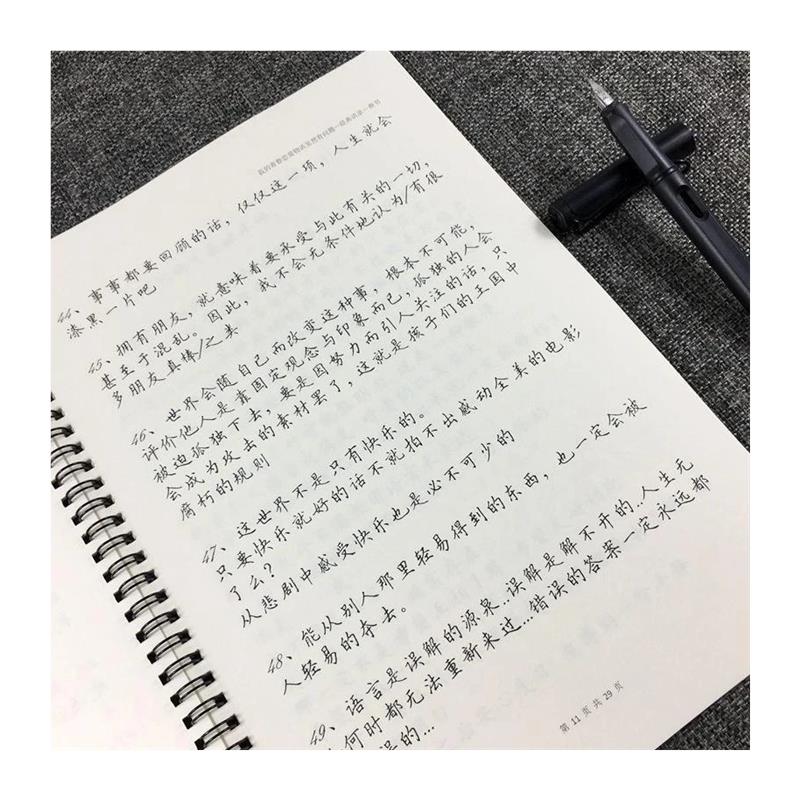 我的青春恋爱物语果然有问题—经典语录—春物
44、事事都要回顾的话，仅仅这一项，人生就会
漆黑一片吧
45、拥有朋友，就意味着要承受与此有关的一切，
甚至于混乱。因此，我不会无条件地认为/有很
多朋友真棒/之类
46、世界会随自己而改变这种事，根本不可能，
评价他人是靠固定观念与印象而已，孤独的人会
被迫孤独下去，要是因努力而引人关注的话，只
会成为攻击的素材罢了，这就是孩子们的王国中
腐朽的规则
47、这世界不是只有快乐的。
只要快乐就好的话不就拍不出感动全美的电影
了么？
从悲剧中感受快乐也是必不可少的
48、能从别人那里轻易得到的东西，也一定会被
人轻易的夺去。
49、语言是误解的源泉..误解是解不开的..人生无
何时都无法重新来过...错误的答案一定永远都
误的...
第 11 页 共 29 页